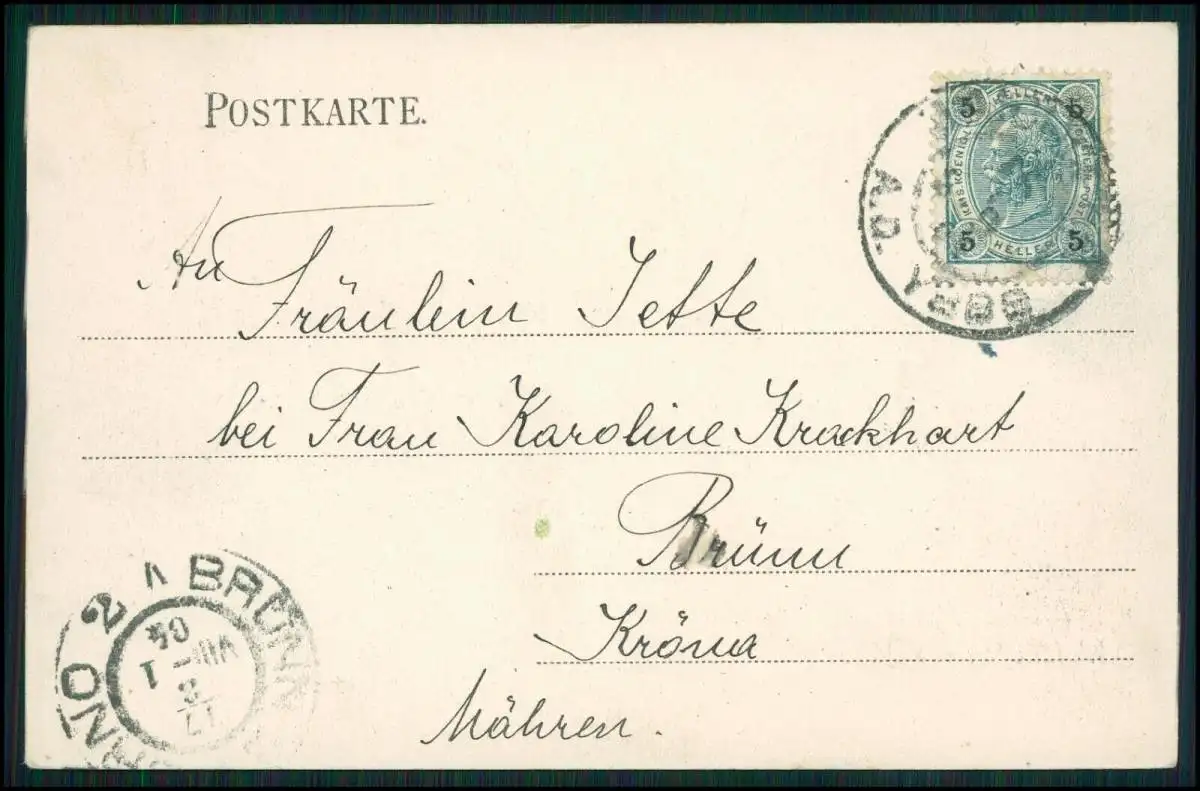 POSTKARTE.
5 HELLER 5
KAIS. KOENIGL. OESTERR. POST
5 HELLER 5
A.D. YBBS
An
Fräulein Jette
bei Frau Karoline Krackhart
Brünn
Kröna
Mähren.
BRÜNN
BRNO 2
17/8
VIII–1
04